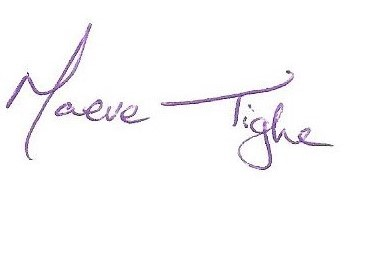 Maeve Tighe